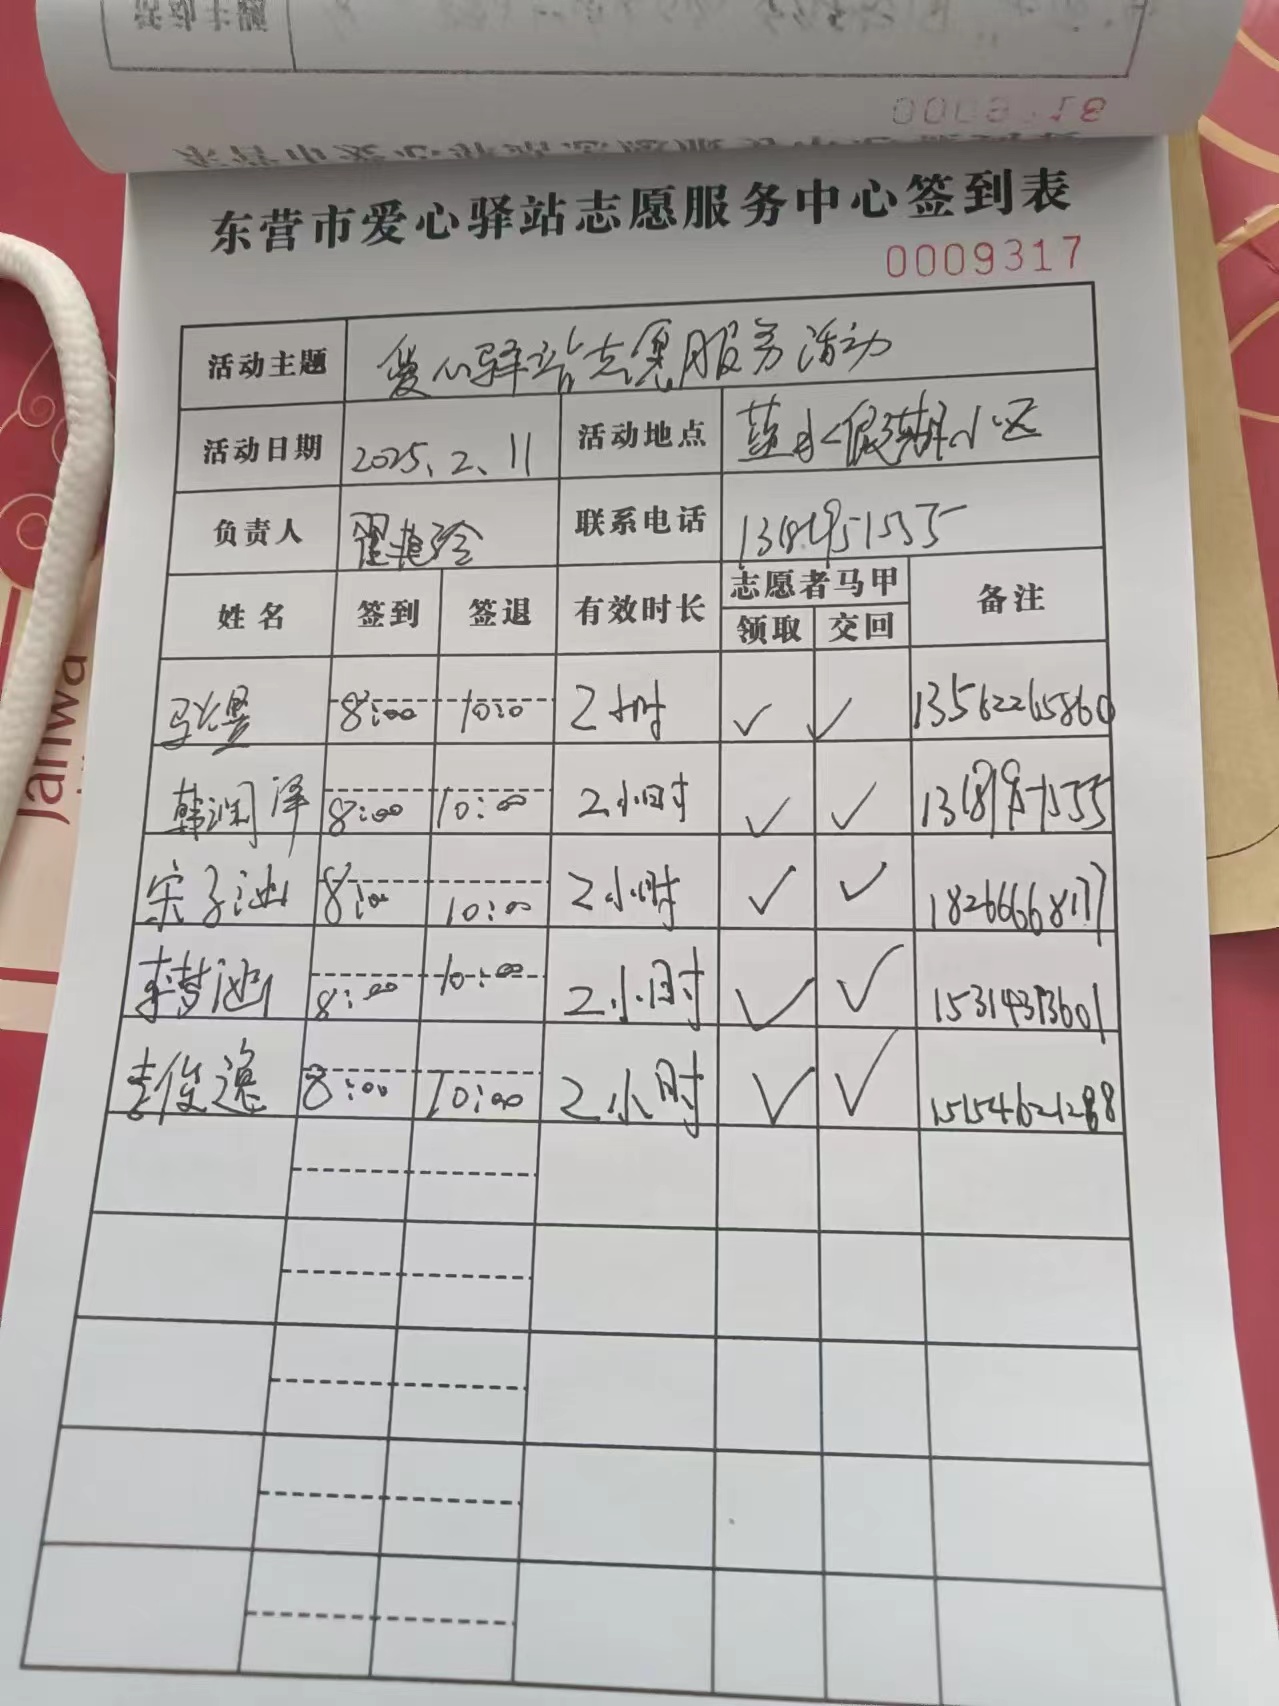 东营市爱心驿站志愿服务中心签到表
0009317
活动主题 爱心驿站志愿服务活动
活动日期 2025、2、11 活动地点 小区
负责人 联系电话
姓名 签到 签退 有效时长 志愿者马甲 备注
领取 交回
8:00 10:0 2小时 ✓ ✓ 13562265860
韩润泽 8:00 10:00 2小时 ✓ ✓
宋子池 8:00 10:00 2小时 ✓ ✓ 18266668177
李梦池 8:00 10:00 2小时 ✓ ✓ 15314313601
李俊逸 8:00 10:00 2小时 ✓ ✓ 15154621288
janwa